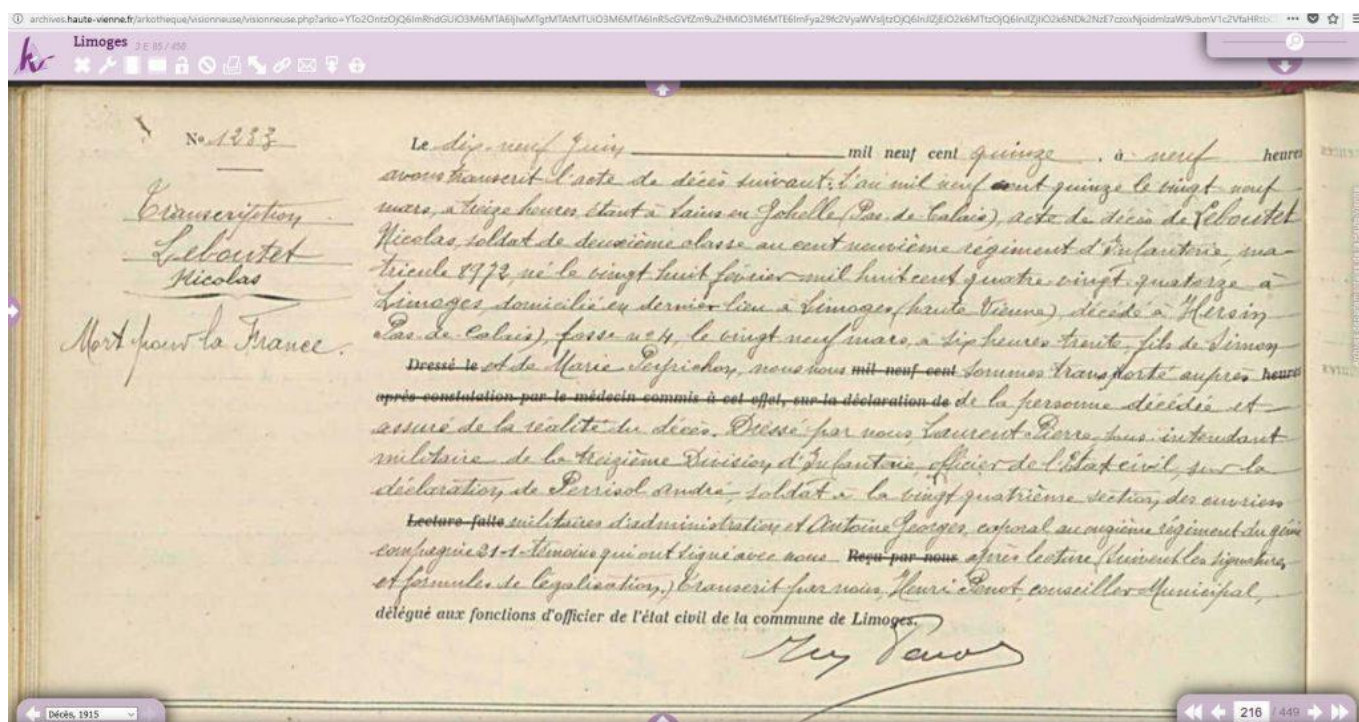 archives.haute-vienne.fr/arkotheque/visionneuse/visionneuse.php?arko=
Limoges 3 E 85 / 450
No 1233
Transcription
Leboutet
Nicolas
Mort pour la France.
Le dix-neuf Juin mil neuf cent quinze, à neuf heures
avons transcrit l'acte de décès suivant: L'an mil neuf cent quinze le vingt neuf
mars, à treize heures étant à Sains en Gohelle (Pas-de-Calais), acte de décès de Leboutet
Nicolas, soldat de deuxième classe au cent neuvième régiment d'Infanterie, ma-
tricule 8972, né le vingt huit février mil huit cent quatre vingt quatorze à
Limoges, domicilié en dernier lieu à Limoges (haute Vienne), décédé à Hersin
Pas-de-Calais), fosse no 4, le vingt neuf mars, à six heures trente, fils de Simon
Dressé le et de Marie Peyrichon, nous nous mil neuf cent sommes transporté auprès heures
après constatation par le médecin commis à cet effet, sur la déclaration de de la personne décédée et
assuré de la réalité du décès. Dressé par nous, Laurent Pierre, sous intendant
militaire de la treizième Division d'Infanterie, officier de l'Etat civil, sur la
déclaration de Perrisol André, soldat à la vingt quatrième section des ouvriers
Lecture faite militaires d'administration et Antoine Georges, caporal au onzième régiment du génie
compagnie 21-1- témoins qui ont signé avec nous Reçu par nous après lecture (suivent les signatures
et formules de légalisation.) Transcrit par nous, Henri Penot, conseiller Municipal,
délégué aux fonctions d'officier de l'état civil de la commune de Limoges.
Décès, 1915
216 / 449